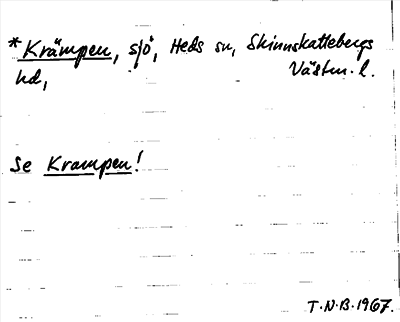 *Krämpen, sjö, Heds sn, Skinnskattebergs
hd, Västm. l.
Se Krampen!
T.N.B. 1967.